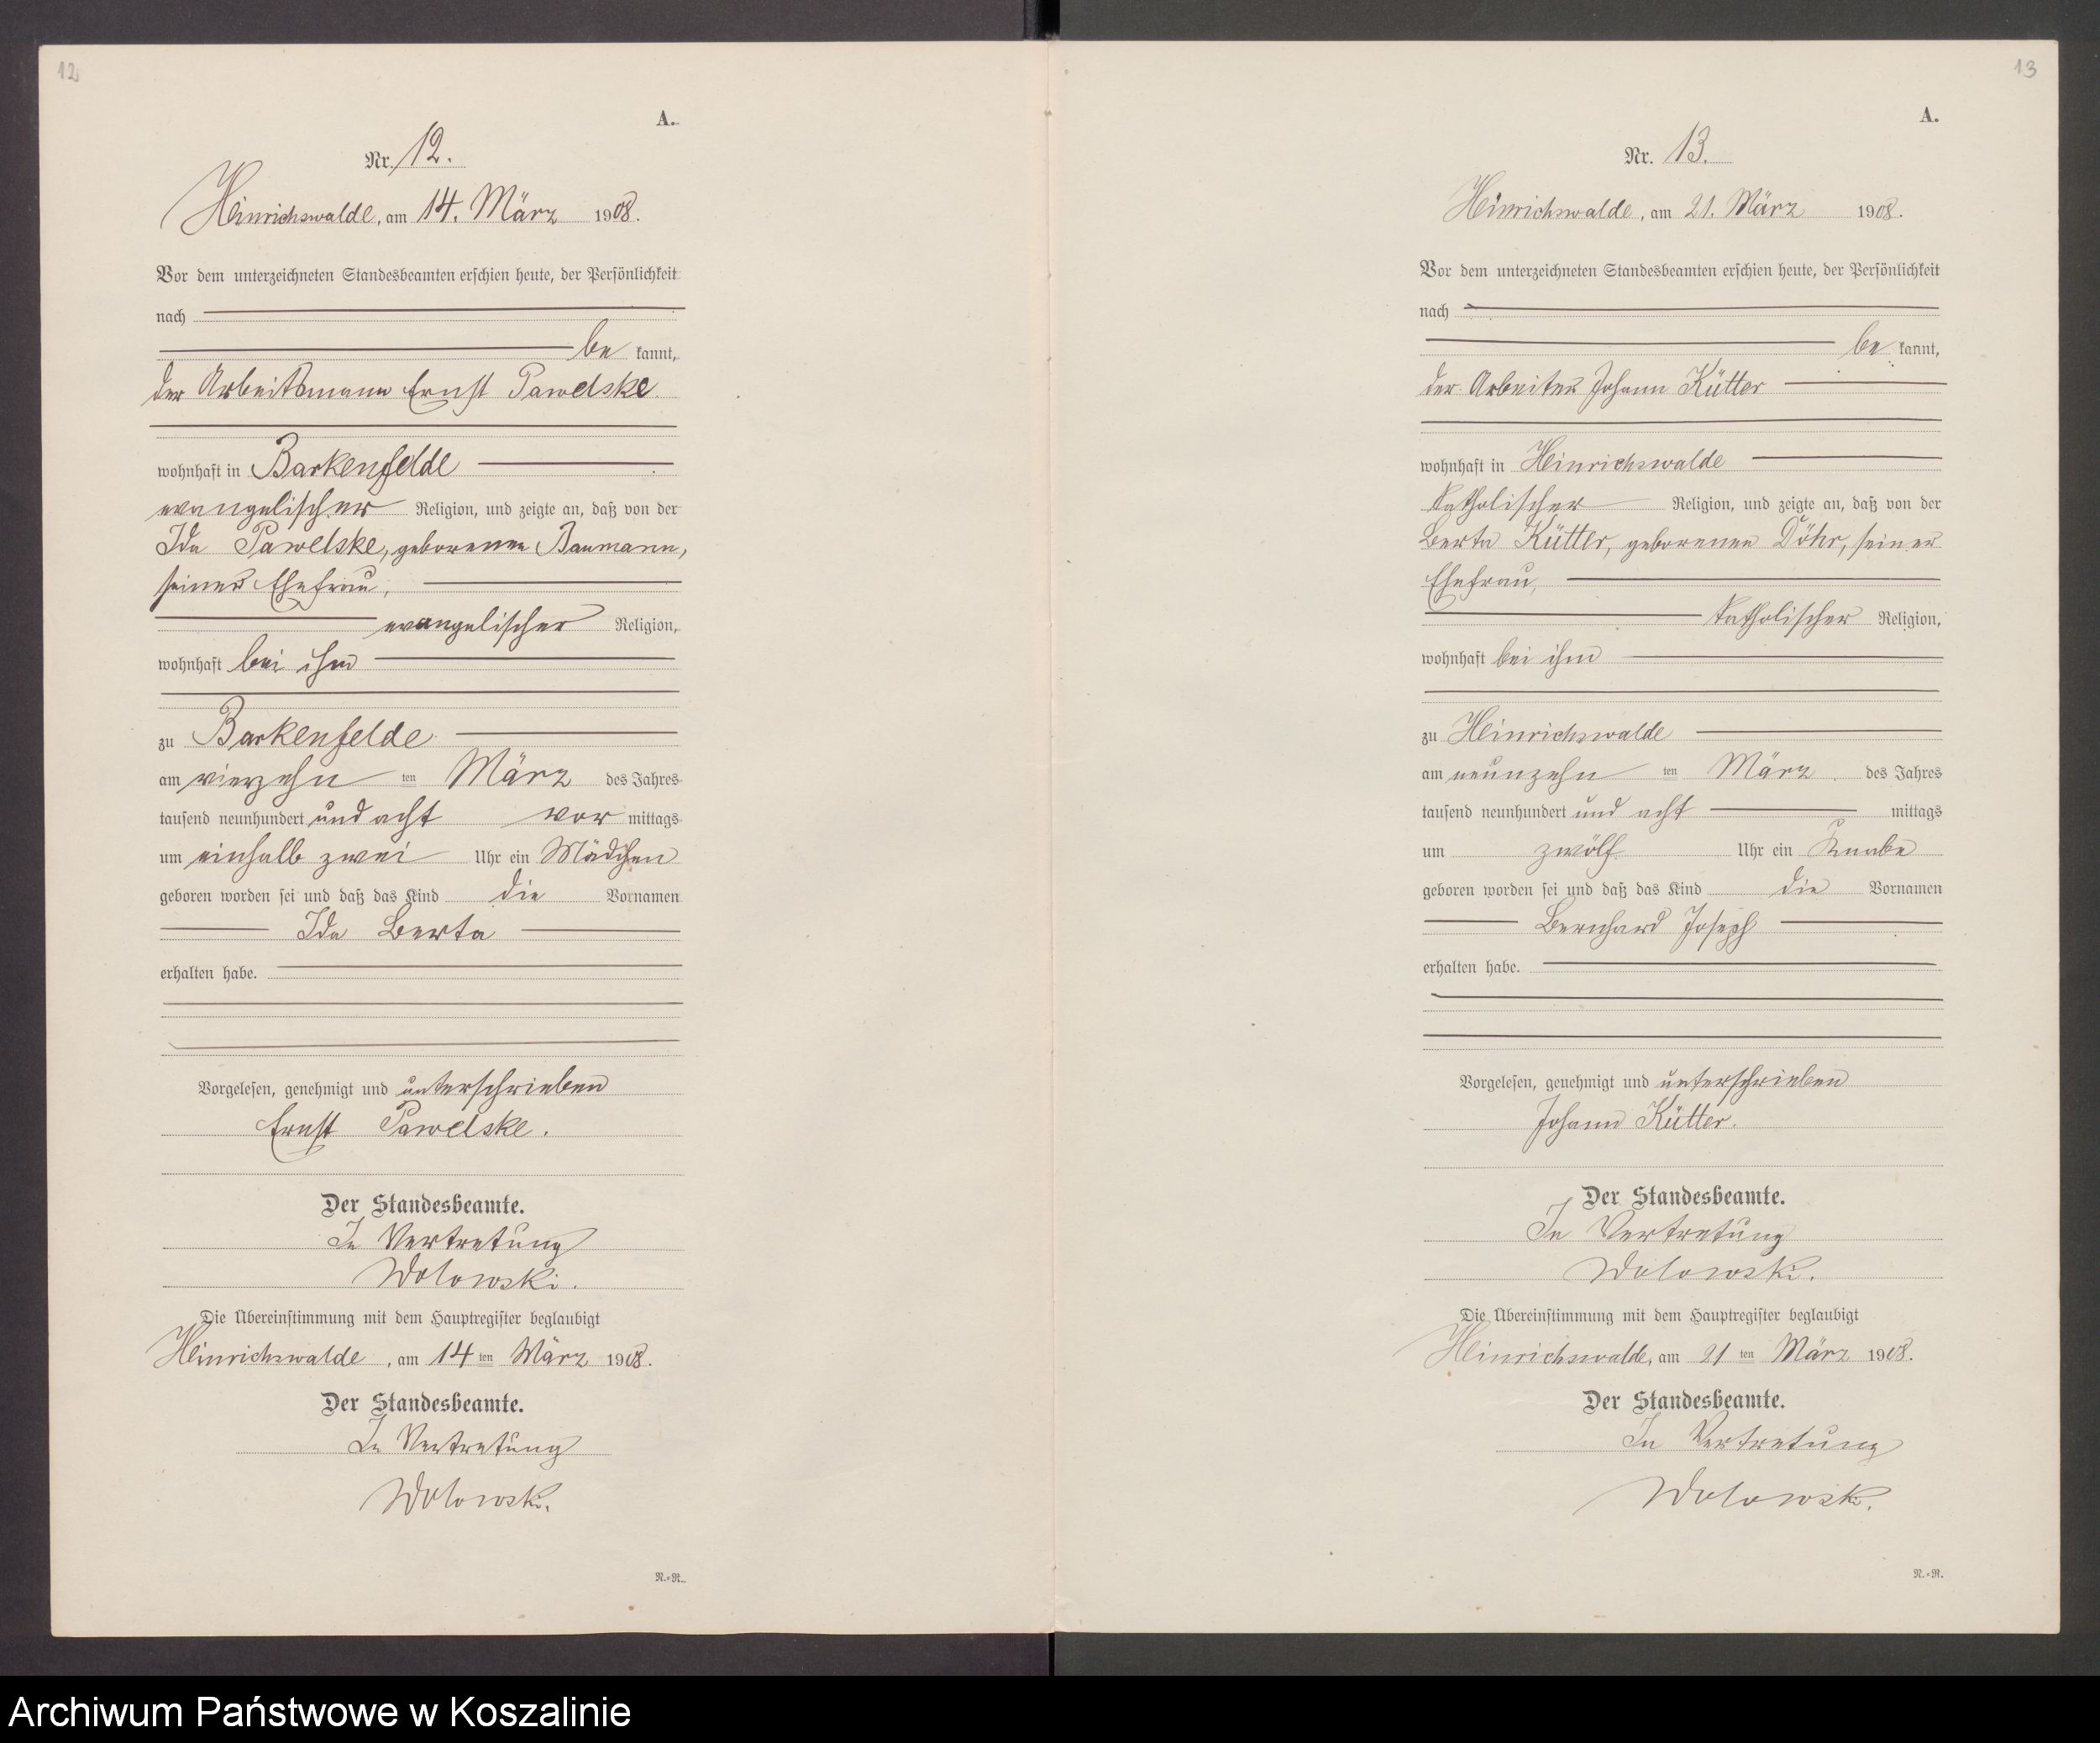 12
A.
Nr. 12.
Heinrichswalde, am 14. März 1908.
Vor dem unterzeichneten Standesbeamten erschien heute, der Persönlichkeit
nach
be kannt,
der Arbeitsmann Ernst Pawelske
wohnhaft in Barkenfelde
evangelischer Religion, und zeigte an, daß von der
Ida Pawelske, geborenen Baumann,
seiner Ehefrau,
evangelischer Religion,
wohnhaft bei ihm
zu Barkenfelde
am vierzehn ten März des Jahres
tausend neunhundert und acht vor mittags
um einhalb zwei Uhr ein Mädchen
geboren worden sei und daß das Kind die Vornamen
Ida Berta
erhalten habe.
Vorgelesen, genehmigt und unterschrieben
Ernst Pawelske.
Der Standesbeamte.
In Vertretung
Wolowski.
Die Übereinstimmung mit dem Hauptregister beglaubigt
Heinrichswalde, am 14 ten März 1908.
Der Standesbeamte.
In Vertretung
Wolowski.
N.=R.
13
A.
Nr. 13.
Heinrichswalde, am 21. März 1908.
Vor dem unterzeichneten Standesbeamten erschien heute, der Persönlichkeit
nach
be kannt,
der Arbeiter Johann Kütter
wohnhaft in Heinrichswalde
katholischer Religion, und zeigte an, daß von der
Berta Kütter, geborenen Döhr, seiner
Ehefrau,
katholischer Religion,
wohnhaft bei ihm
zu Heinrichswalde
am neunzehn ten März des Jahres
tausend neunhundert und acht mittags
um zwölf Uhr ein Knabe
geboren worden sei und daß das Kind die Vornamen
Bernhard Joseph
erhalten habe.
Vorgelesen, genehmigt und unterschrieben
Johann Kütter.
Der Standesbeamte.
In Vertretung
Wolowski.
Die Übereinstimmung mit dem Hauptregister beglaubigt
Heinrichswalde, am 21 ten März 1908.
Der Standesbeamte.
In Vertretung
Wolowski.
N.=R.
Archiwum Państwowe w Koszalinie